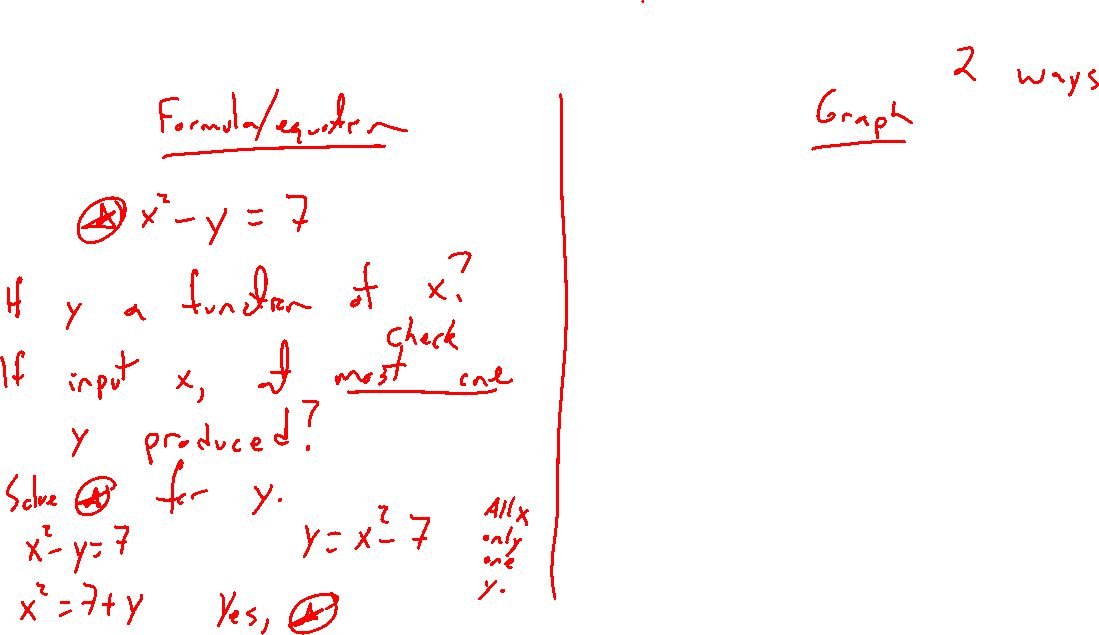 2 ways
Formula/equation
Graph
★ x² - y = 7
If y a function of x?
check
If input x, at most one
y produced?
Solve ★ for y.
x² - y = 7
y = x² - 7
All x
only
one
y.
x² = 7 + y
Yes, ★